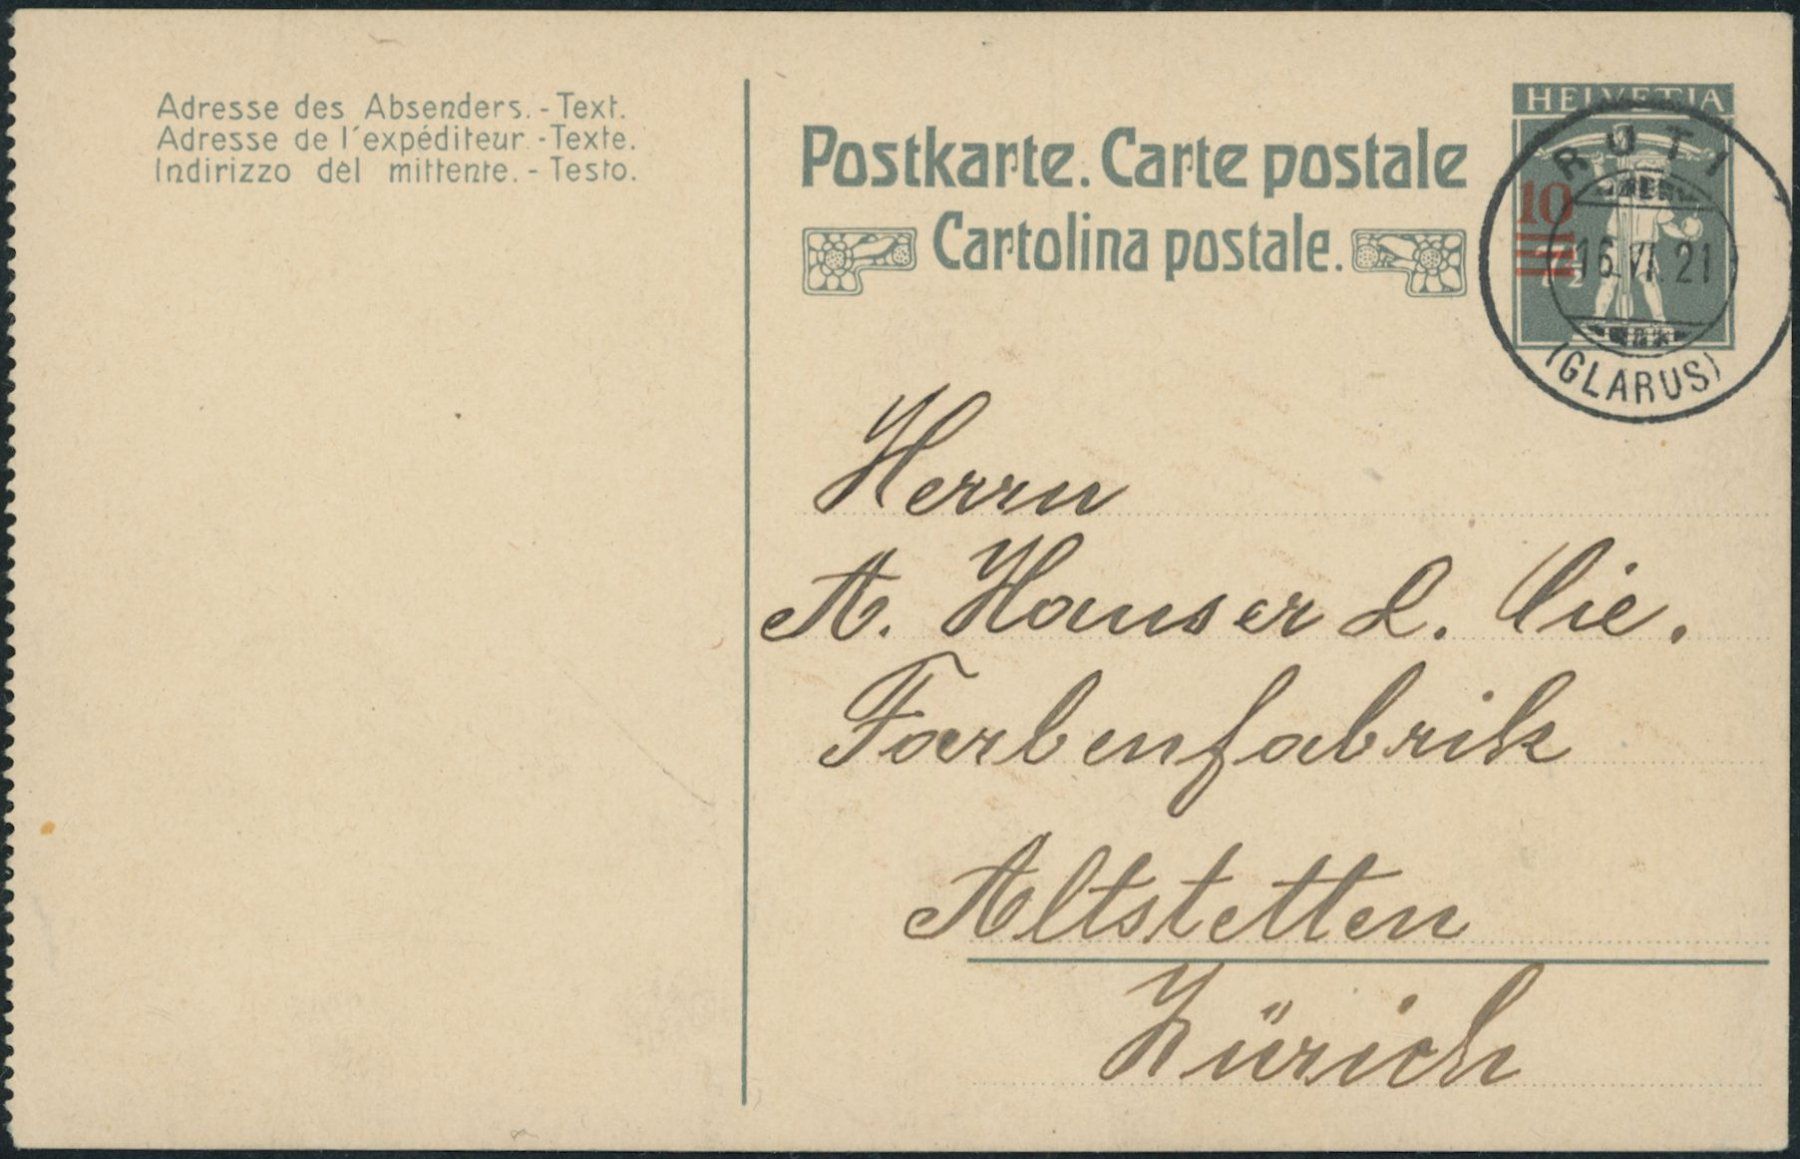 Adresse des Absenders. - Text.
Adresse de l'expéditeur - Texte.
Indirizzo del mittente. - Testo.
Postkarte. Carte postale
Cartolina postale.
HELVETIA
10
7½
RÜTI
16.VI.21
(GLARUS)
Herrn
A. Hauser & Cie.
Farbenfabrik
Altstetten
Zürich